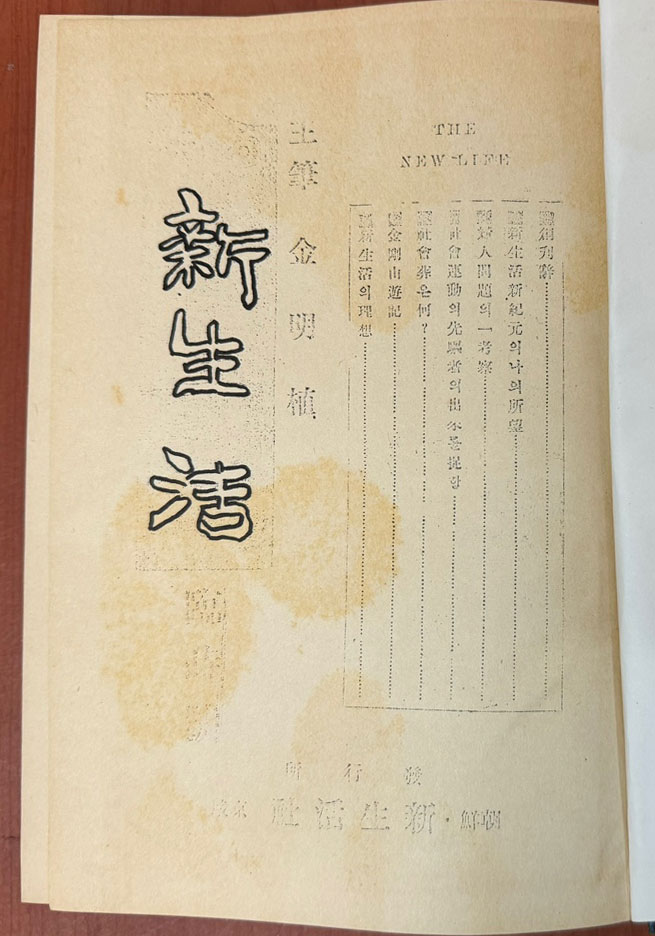 THE
NEW LIFE
創刊辭
新生活新紀元의나의所望
婦人問題의一考察
社會運動의先驅者의出來를促함
社會葬은何?
金剛山遊記
新生活의理想
主筆 金明植
新生活
臨時號
發行所
朝鮮・新生活社 京城